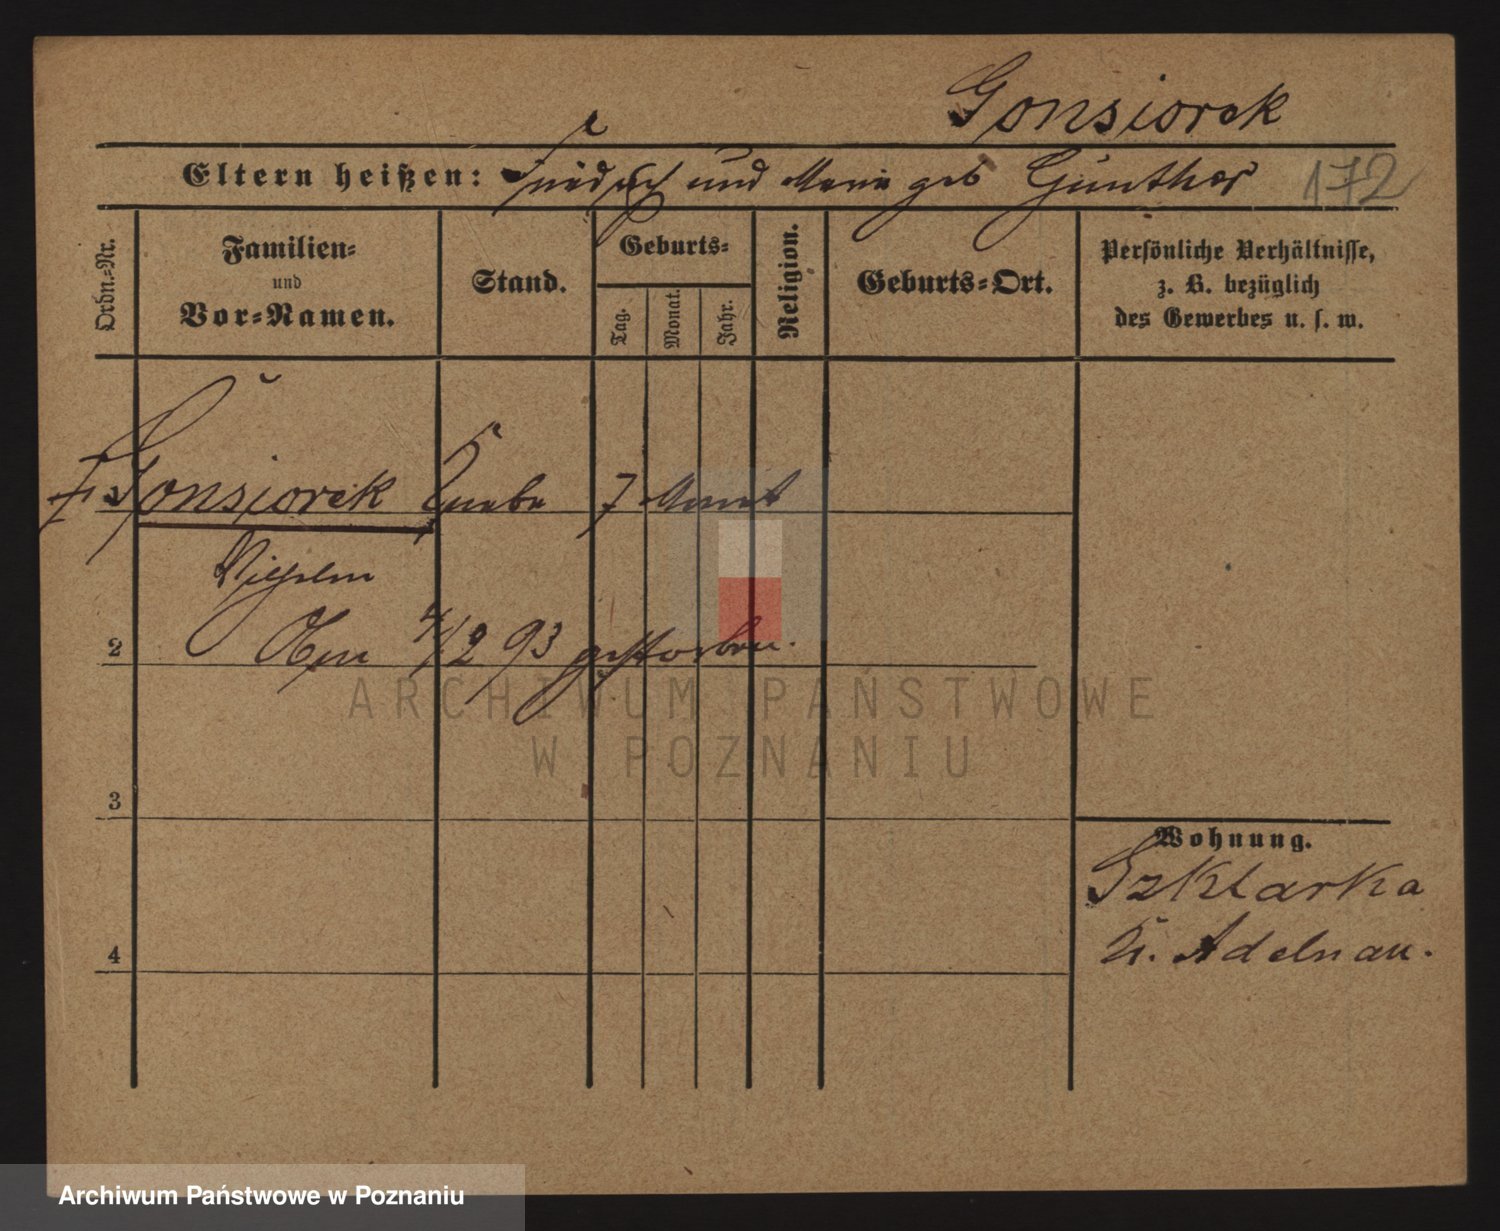 Gonsiorek
Eltern heißen: Friedrich und Marie geb Günther 172
Ordn.-Nr.
Familien-
und
Vor-Namen.
Stand.
Geburts-
Tag.
Monat.
Jahr.
Religion.
Geburts-Ort.
Persönliche Verhältnisse,
z. B. bezüglich
des Gewerbes u. s. w.
Gonsiorek Knabe 7 Monat
Wilhelm
2 4/2 93 gestorben.
3
4
Wohnung.
Szklarka
K. Adelnau.
ARCHIWUM PAŃSTWOWE
W POZNANIU
Archiwum Państwowe w Poznaniu